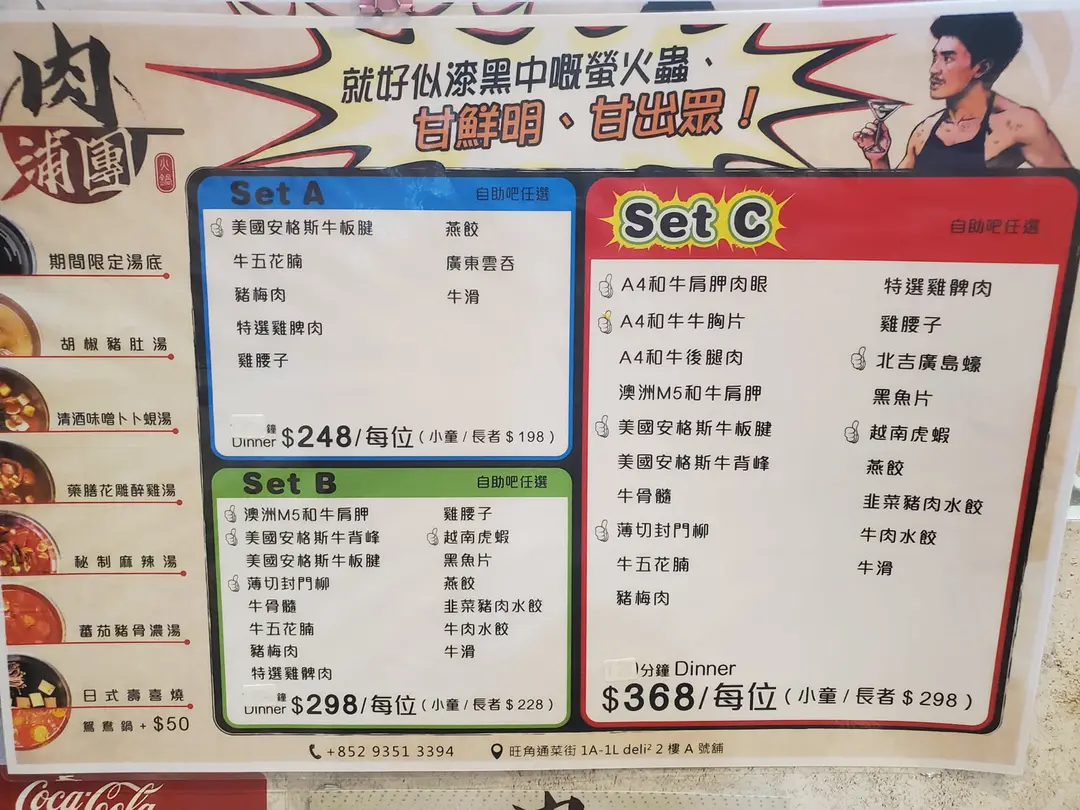 肉
浦團
火鍋
就好似漆黑中嘅螢火蟲、
甘鮮明、甘出眾！
期間限定湯底
胡椒豬肚湯
清酒味噌卜卜蜆湯
藥膳花雕醉雞湯
秘制麻辣湯
蕃茄豬骨濃湯
日式壽喜燒
鴛鴦鍋 + $50
Set A
自助吧任選
美國安格斯牛板腱
牛五花腩
豬梅肉
特選雞脾肉
雞腰子
燕餃
廣東雲吞
牛滑
鐘
Dinner $248/每位 (小童/長者$198)
Set B
自助吧任選
澳洲M5和牛肩胛
美國安格斯牛背峰
美國安格斯牛板腱
薄切封門柳
牛骨髓
牛五花腩
豬梅肉
特選雞髀肉
雞腰子
越南虎蝦
黑魚片
燕餃
韭菜豬肉水餃
牛肉水餃
牛滑
鐘
Dinner $298/每位 (小童/長者$228)
Set C
自助吧任選
A4和牛肩胛肉眼
A4和牛牛胸片
A4和牛後腿肉
澳洲M5和牛肩胛
美國安格斯牛板腱
美國安格斯牛背峰
牛骨髓
薄切封門柳
牛五花腩
豬梅肉
特選雞髀肉
雞腰子
北吉廣島蠔
黑魚片
越南虎蝦
燕餃
韭菜豬肉水餃
牛肉水餃
牛滑
分鐘 Dinner
$368/每位 (小童/長者$298)
+852 9351 3394
旺角通菜街 1A-1L deli² 2 樓 A 號舖
Coca-Cola